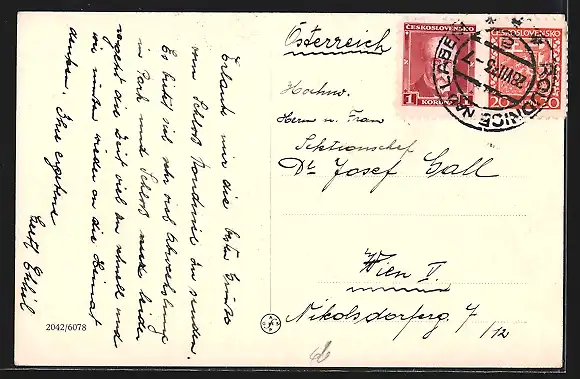 Erlaube mir die besten Grüße
vom Schloß Kondnine zu senden.
Es bietet sich sehr viel Abwechslung
in Park und Schloß und leider
vergeht die Zeit viel zu schnell und
wir müssen wieder an die Heimat
denken. Ihre ergebene
2042/6078
Österreich
ČESKOSLOVENSKO
1 KORUNA
ČESKOSLOVENSKO
20 20
ROUDNICE N. LABEM
22.VIII.35-7
Hochw.
Herrn u. Frau
Sektionschef
Dr Josef Gall
Wien V
Nikolsdorferg. 7/12